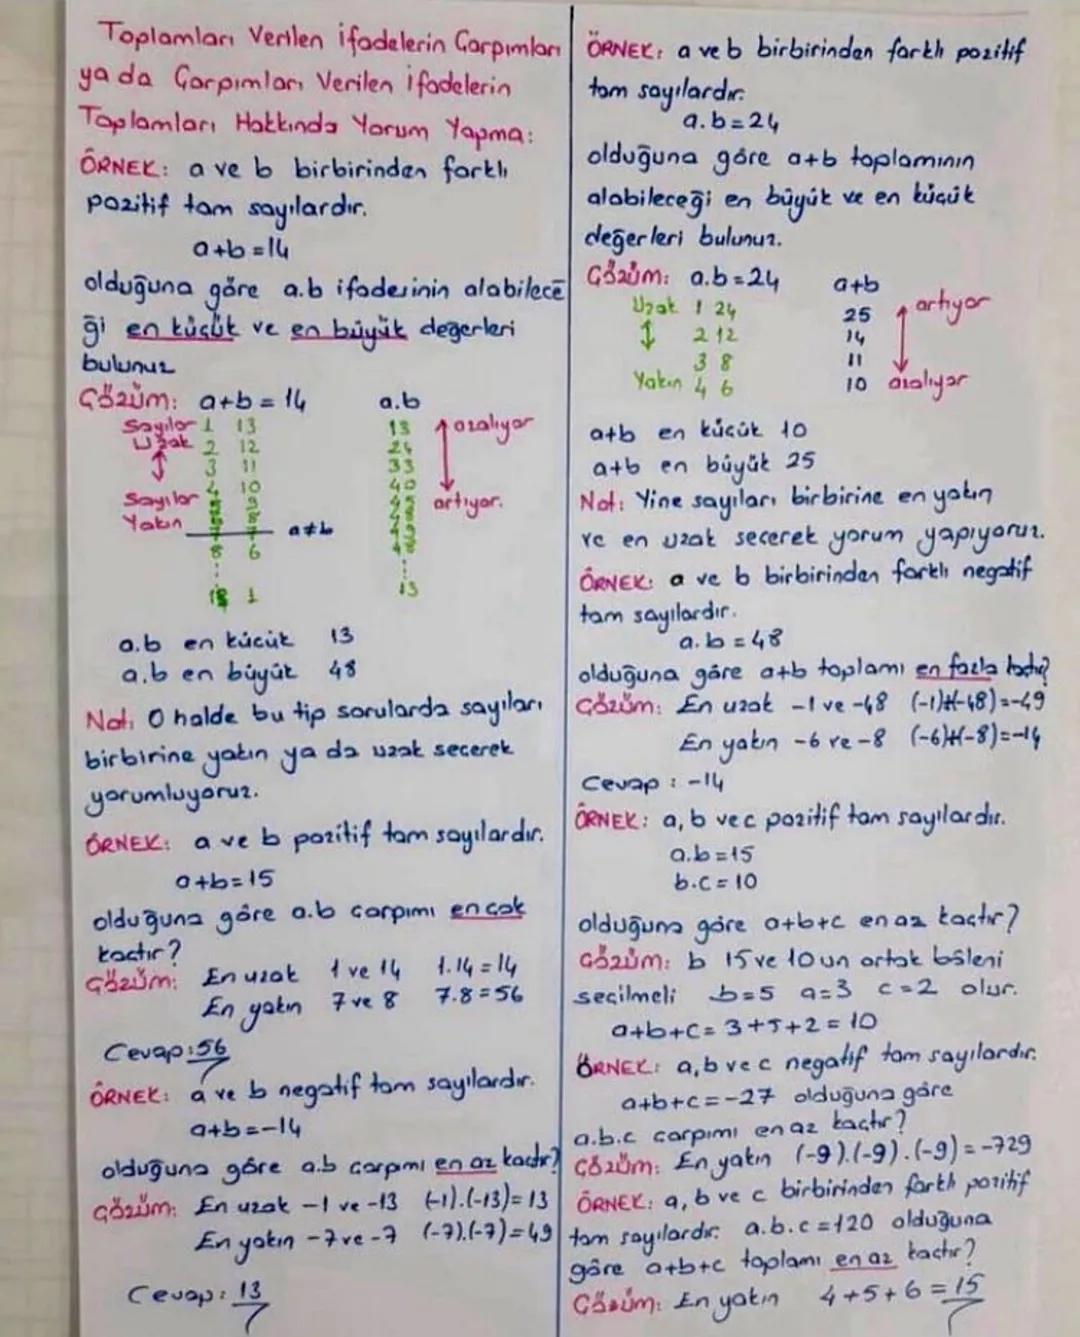 Toplamları Verilen ifadelerin Çarpımları
ya da Çarpımları Verilen ifadelerin
Toplamları Hakkında Yorum Yapma:
ÖRNEK: a ve b birbirinden farklı
pozitif tam sayılardır.
a+b=14
olduğuna göre a.b ifadesinin alabilece
ği en küçük ve en büyük değerleri
bulunuz
Çözüm: a+b=14 a.b
Sayılar 1 13 13 azalıyor
Uzak 2 12 24
3 11 33
Sayılar 4 10 40 artıyor.
Yakın 5 9 45
6 8 48
7 7 49 a≠b
8 6 48
⋮ ⋮
13 1 13
a.b en küçük 13
a.b en büyük 48
Not: O halde bu tip sorularda sayıları
birbirine yakın ya da uzak seçerek
yorumluyoruz.
ÖRNEK: a ve b pozitif tam sayılardır.
a+b=15
olduğuna göre a.b çarpımı en çok
kaçtır?
Çözüm: En uzak 1 ve 14 1.14=14
En yakın 7 ve 8 7.8=56
Cevap:56
ÖRNEK: a ve b negatif tam sayılardır.
a+b=-14
olduğuna göre a.b çarpımı en az kaçtır?
Çözüm: En uzak -1 ve -13 (-1).(-13)=13
En yakın -7 ve -7 (-7).(-7)=49
Cevap: 13
ÖRNEK: a ve b birbirinden farklı pozitif
tam sayılardır.
a.b=24
olduğuna göre a+b toplamının
alabileceği en büyük ve en küçük
değerleri bulunuz.
Çözüm: a.b=24 a+b
Uzak 1 24 25 artıyor
2 12 14
3 8 11
Yakın 4 6 10 azalıyor
a+b en küçük 10
a+b en büyük 25
Not: Yine sayıları birbirine en yakın
ve en uzak seçerek yorum yapıyoruz.
ÖRNEK: a ve b birbirinden farklı negatif
tam sayılardır.
a.b=48
olduğuna göre a+b toplamı en fazla kaçtır?
Çözüm: En uzak -1 ve -48 (-1)+(-48)=-49
En yakın -6 ve -8 (-6)+(-8)=-14
Cevap: -14
ÖRNEK: a, b ve c pozitif tam sayılardır.
a.b=15
b.c=10
olduğuna göre a+b+c en az kaçtır?
Çözüm: b 15 ve 10 un ortak böleni
seçilmeli b=5 a=3 c=2 olur.
a+b+c=3+5+2=10
ÖRNEK: a, b ve c negatif tam sayılardır.
a+b+c=-27 olduğuna göre
a.b.c çarpımı en az kaçtır?
Çözüm: En yakın (-9).(-9).(-9)=-729
ÖRNEK: a, b ve c birbirinden farklı pozitif
tam sayılardır. a.b.c=120 olduğuna
göre a+b+c toplamı en az kaçtır?
Çözüm: En yakın 4+5+6=15